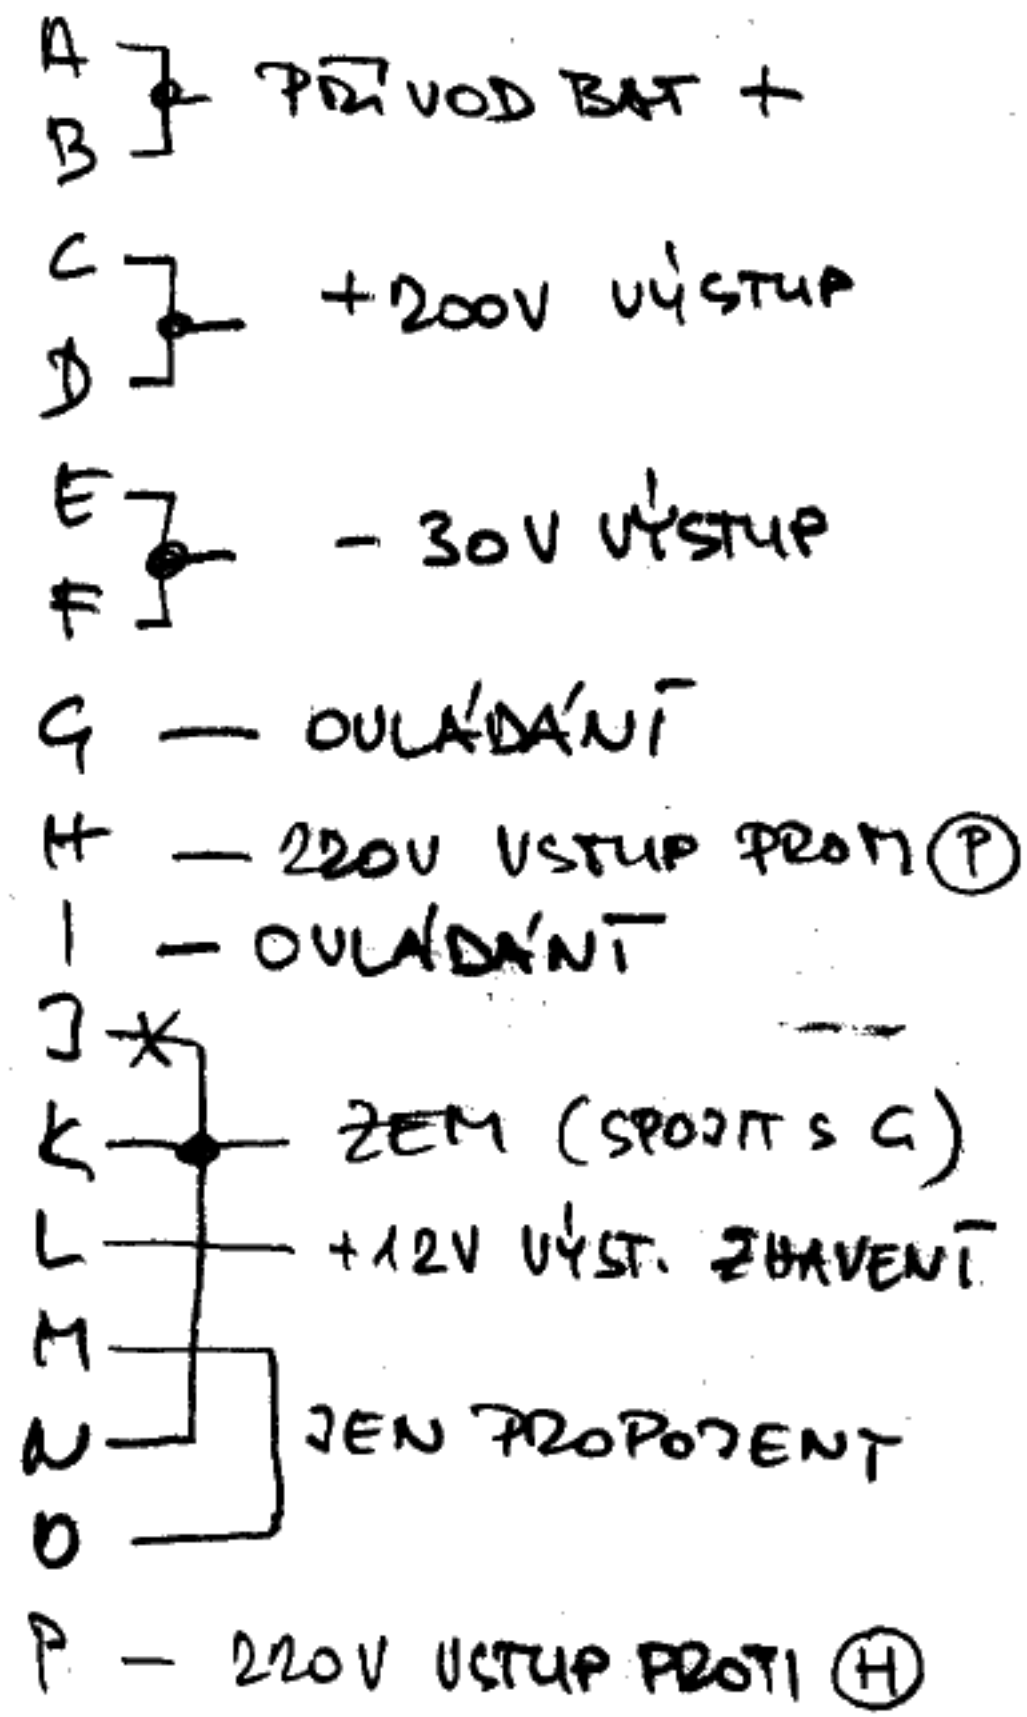 A
PŘÍVOD BAT +
B
C
+200V VÝSTUP
D
E
- 30V VÝSTUP
F
G — OVLÁDÁNÍ
H — 220V VSTUP PROTI (P)
I — OVLÁDÁNÍ
J
K ZEM (SPOJIT S G)
L +12V VÝST. ŽHAVENÍ
M
N JEN PROPOJENÍ
O
P — 220V VSTUP PROTI (H)